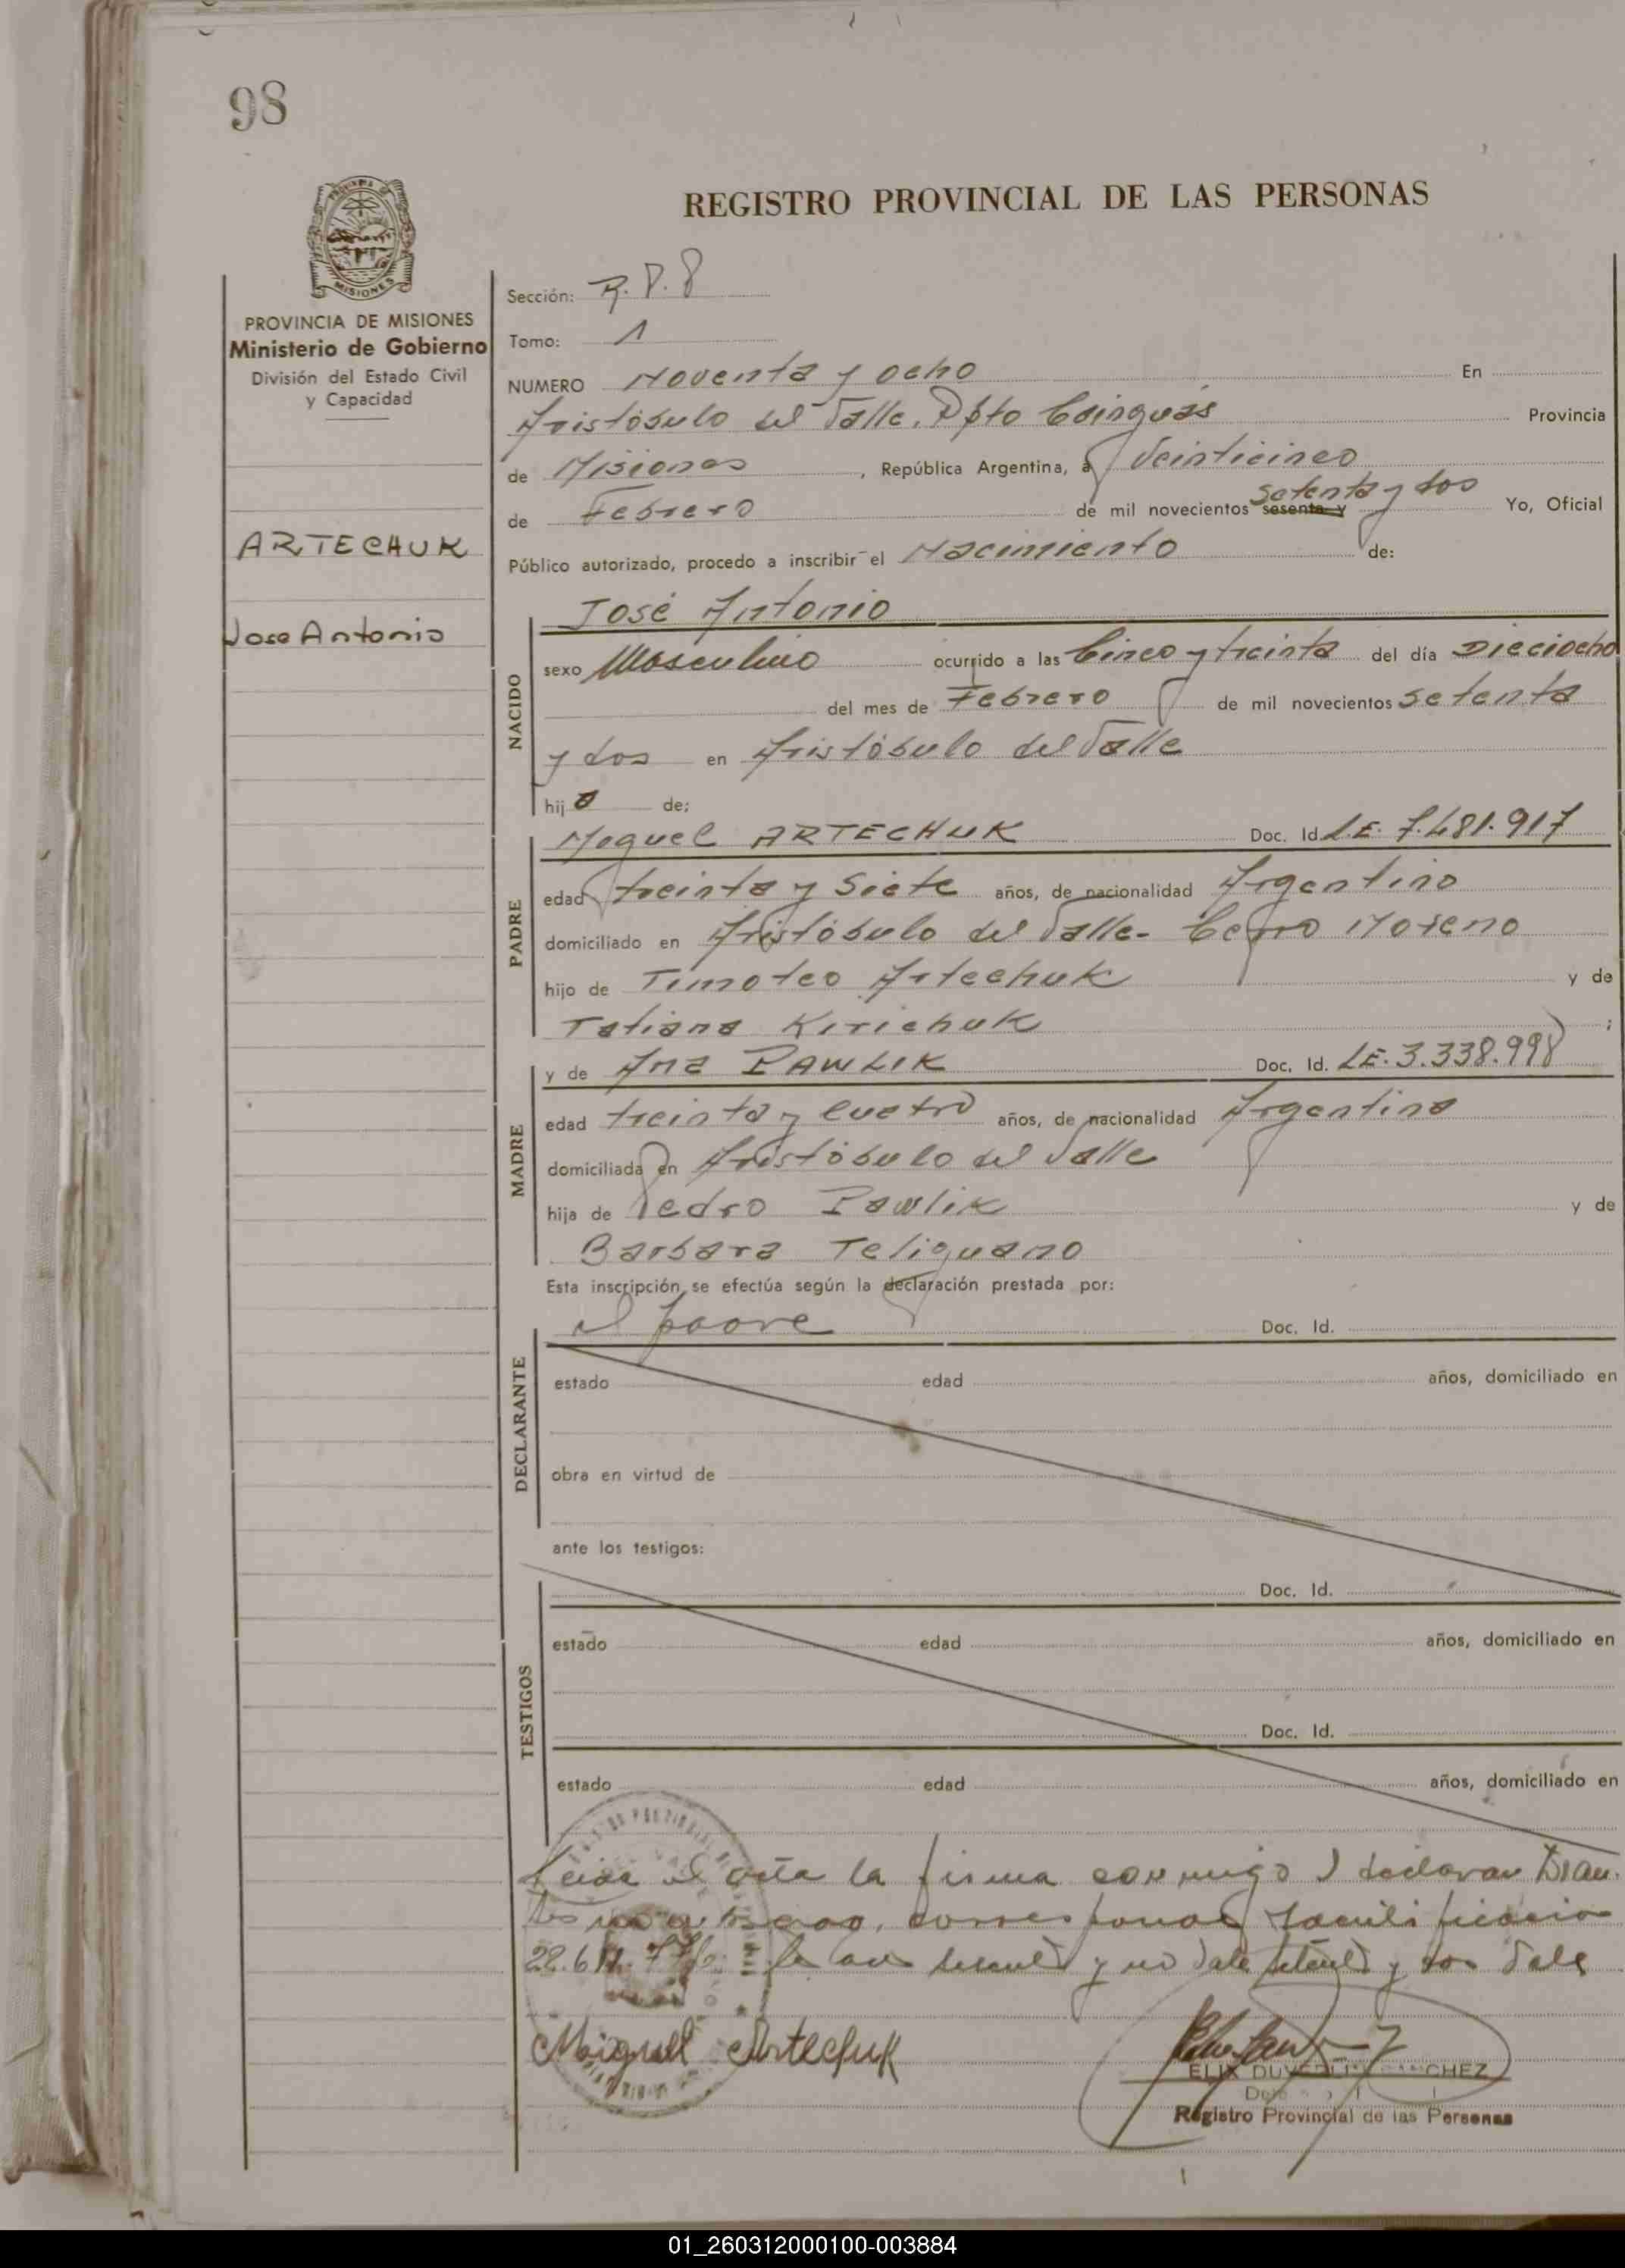 98
REGISTRO PROVINCIAL DE LAS PERSONAS
MISIONES
PROVINCIA DE MISIONES
Ministerio de Gobierno
División del Estado Civil
y Capacidad
ARTECHUK
Jose Antonio
Sección: R.P.P
Tomo: 1
NUMERO Noventa y ocho En
Aristóbulo del Valle. Dpto Cainguás Provincia
de Misiones, República Argentina, a Veinticinco
de Febrero de mil novecientos sesenta y setenta y dos Yo, Oficial
Público autorizado, procedo a inscribir el Nacimiento de:
NACIDO
José Antonio
sexo Masculino ocurrido a las Cinco y treinta del día Dieciocho
del mes de Febrero de mil novecientos setenta
y dos en Aristóbulo del Valle
hijo de:
PADRE
Miguel ARTECHUK Doc. Id. L.E. 7.481.917
edad treinta y siete años, de nacionalidad Argentino
domiciliado en Aristóbulo del Valle- Cerro Moreno
hijo de Timoteo Artechuk y de
Tatiana Kirichuk ;
MADRE
y de Ana PAWLIK Doc. Id. LE. 3.338.998
edad treinta y cuatro años, de nacionalidad Argentina
domiciliada en Aristóbulo del Valle
hija de Pedro Pawlik y de
Barbara Teliguano
Esta inscripción se efectúa según la declaración prestada por:
DECLARANTE
el padre Doc. Id.
estado edad años, domiciliado en
obra en virtud de
ante los testigos:
TESTIGOS
Doc. Id.
estado edad años, domiciliado en
Doc. Id.
estado edad años, domiciliado en
Leida el acta la firma conmigo
y no Vale setenta y dos Vale
Miguel Artechuk
Registro Provincial de las Personas
01_260312000100-003884